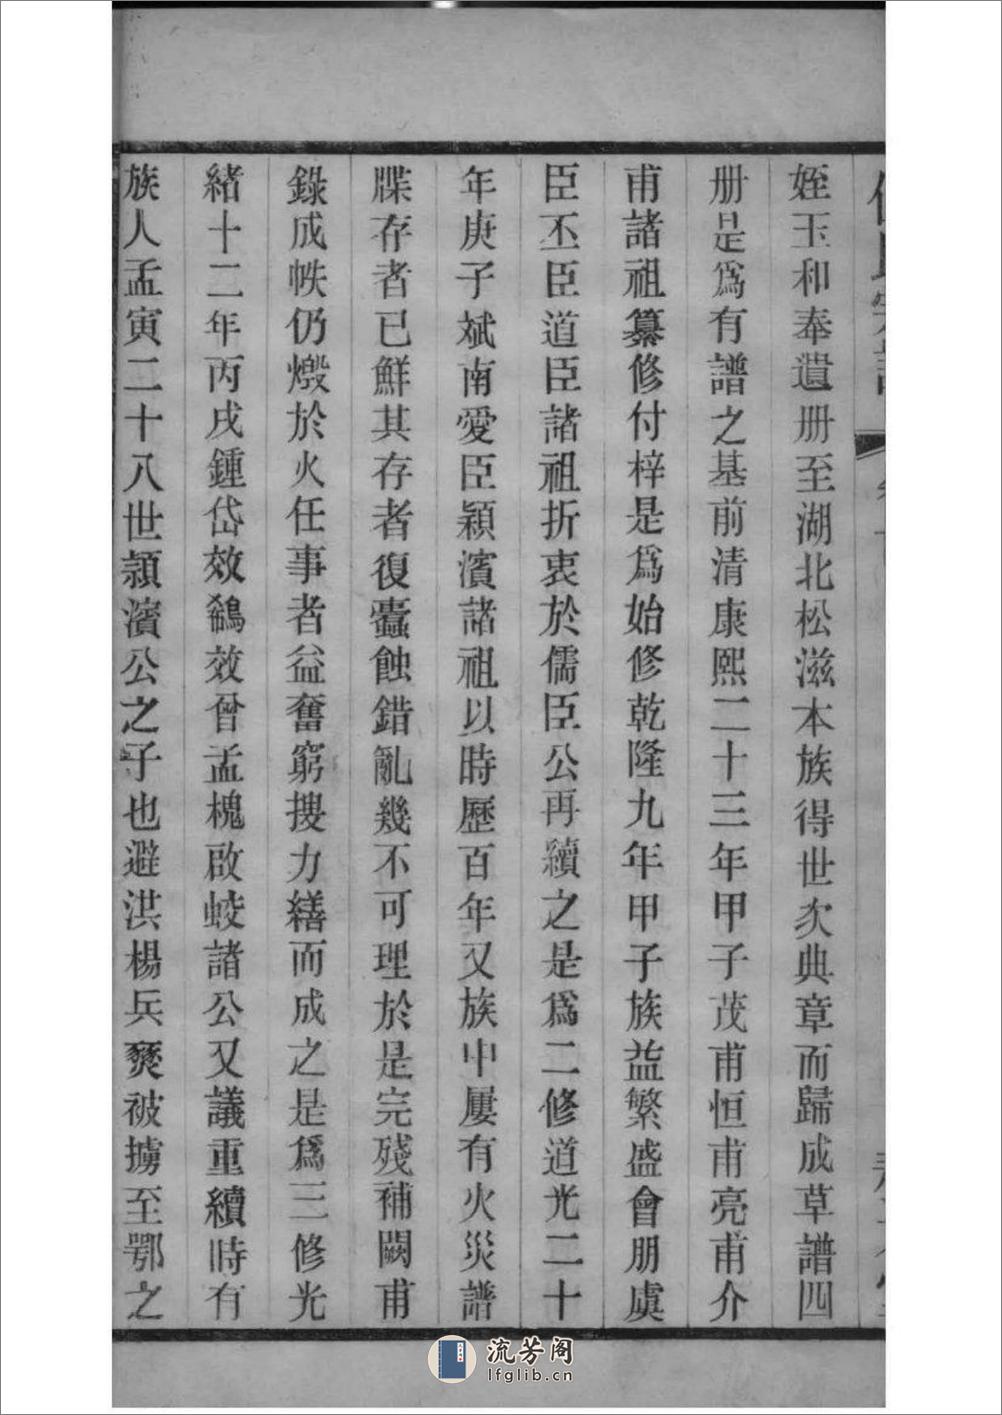 姪玉和奉遺册至湖北松滋本族得世次典章而歸成草譜四
册是爲有譜之基前清康熙二十三年甲子茂甫恒甫亮甫介
甫諸祖纂修付梓是爲始修乾隆九年甲子族益繁盛會朋虞
臣丕臣道臣諸祖折衷於儒臣公再續之是爲二修道光二十
年庚子斌南愛臣穎濱諸祖以時歷百年又族中屢有火災譜
牒存者已鮮其存者復蠹蝕錯亂幾不可理於是完殘補闕甫
錄成帙仍燬於火任事者益奮窮搜力繕而成之是爲三修光
緒十二年丙戌鍾岱效鵷效曾孟槐啟蛟諸公又議重續時有
族人孟寅二十八世頴濱公之子也避洪楊兵燹被擄至鄂之
流芳阁
lfglib.cn